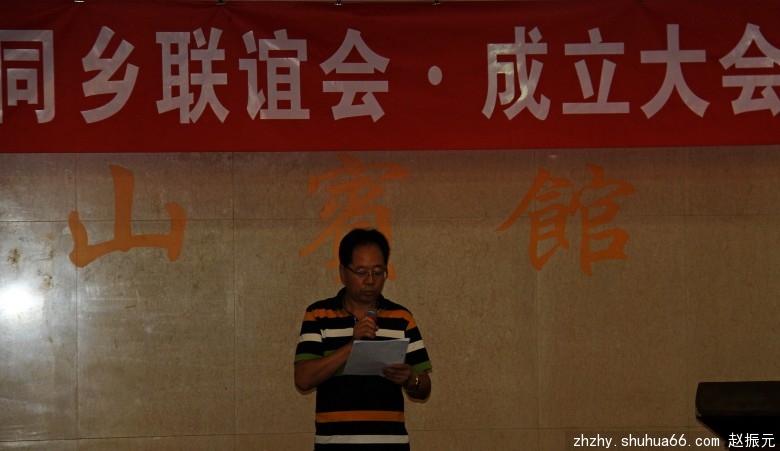 同乡联谊会·成立大会
山賓館
zhzhy.shuhua66.com 赵振元